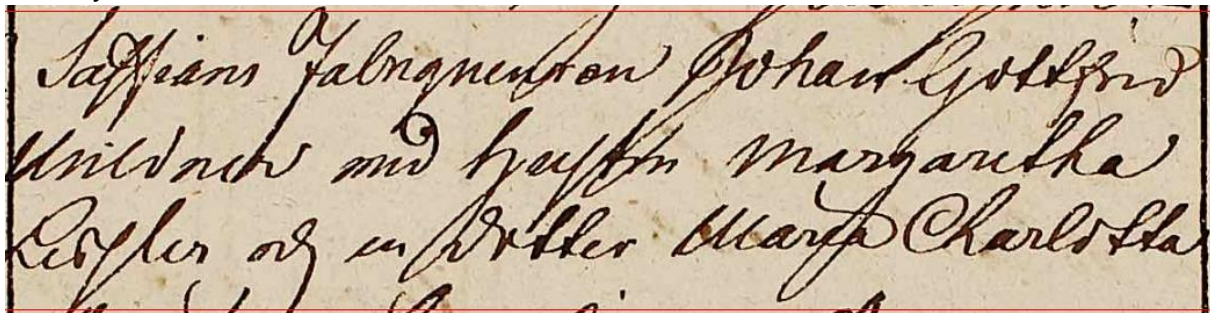 Saffians Fabriqueuren Johan Gottfrid
Mildner med hustru Margaretha
Kessler och en dotter Maria Charlotta